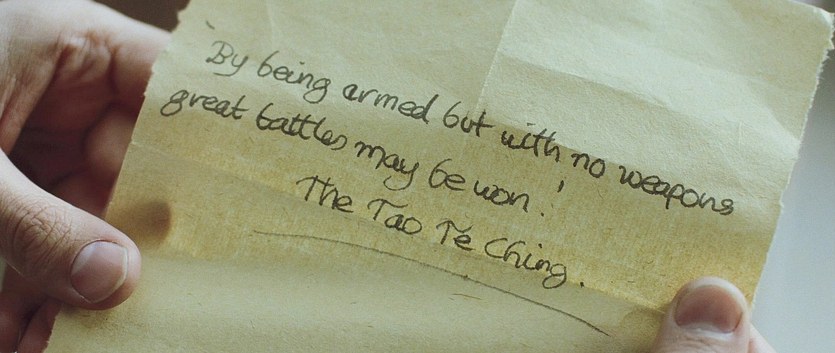 'By being armed but with no weapons
great battles may be won.'
The Tao Te Ching.